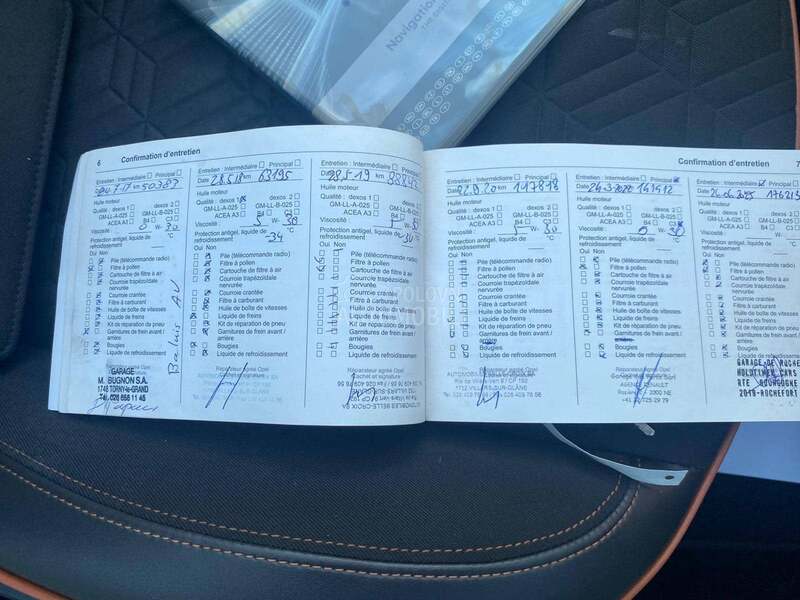 Navigation
6 Confirmation d'entretien
Entretien : Intermédiaire Principal
50387
Huile moteur
Qualité : dexos 1 dexos 2
GM-LL-A-025 GM-LL-B-025
ACEA A3 B4 C3
Viscosité : 0 W- 20
Protection antigel, liquide de refroidissement °C
Oui Non
Pile (télécommande radio)
Filtre à pollen
Cartouche de filtre à air
Courroie trapézoïdale nervurée
Courroie crantée
Filtre à carburant
Huile de boîte de vitesses
Liquide de freins
Kit de réparation de pneu
Garnitures de frein avant / arrière
Bougies
Liquide de refroidissement
GARAGE
M. BUGNON S.A.
1748 TORNY-le-GRAND
Tél. 026 658 11 45
Entretien : Intermédiaire Principal
Date 28.5.18 km 63195
Huile moteur
Qualité : dexos 1 dexos 2
GM-LL-A-025 GM-LL-B-025
ACEA A3 B4 C3
Viscosité : 5 W- 30
Protection antigel, liquide de refroidissement -34 °C
Oui Non
Pile (télécommande radio)
Filtre à pollen
Cartouche de filtre à air
Courroie trapézoïdale nervurée
Courroie crantée
Filtre à carburant
Huile de boîte de vitesses
Liquide de freins
Kit de réparation de pneu
Garnitures de frein avant / arrière
Bougies
Liquide de refroidissement
Réparateur agréé Opel
Cachet et signature
Entretien : Intermédiaire Principal
Date 28.5.19 km
Huile moteur
Qualité : dexos 1 dexos 2
GM-LL-A-025 GM-LL-B-025
ACEA A3 B4 C3
Viscosité : 5 W- 30
Protection antigel, liquide de refroidissement °C
Oui Non
Pile (télécommande radio)
Filtre à pollen
Cartouche de filtre à air
Courroie trapézoïdale nervurée
Courroie crantée
Filtre à carburant
Huile de boîte de vitesses
Liquide de freins
Kit de réparation de pneu
Garnitures de frein avant / arrière
Bougies
Liquide de refroidissement
Réparateur agréé Opel
Cachet et signature
AUTOMOBILES BELLE-CROIX SA
Confirmation d'entretien 7
Entretien : Intermédiaire Principal
Date 20 km 117818
Huile moteur
Qualité : dexos 1 dexos 2
GM-LL-A-025 GM-LL-B-025
ACEA A3 B4 C3
Viscosité : 5 W- 30
Protection antigel, liquide de refroidissement °C
Oui Non
Pile (télécommande radio)
Filtre à pollen
Cartouche de filtre à air
Courroie trapézoïdale nervurée
Courroie crantée
Filtre à carburant
Huile de boîte de vitesses
Liquide de freins
Kit de réparation de pneu
Garnitures de frein avant / arrière
Bougies
Liquide de refroidissement
Réparateur agréé Opel
1752 VILLARS-SUR-GLÂNE
Entretien : Intermédiaire Principal
Date 24-3-2022
Huile moteur
Qualité : dexos 1 dexos 2
GM-LL-A-025 GM-LL-B-025
ACEA A3 B4 C3
Viscosité : 0 W- 30
Protection antigel, liquide de refroidissement °C
Oui Non
Pile (télécommande radio)
Filtre à pollen
Cartouche de filtre à air
Courroie trapézoïdale nervurée
Courroie crantée
Filtre à carburant
Huile de boîte de vitesses
Liquide de freins
Kit de réparation de pneu
Garnitures de frein avant / arrière
Bougies
Liquide de refroidissement
Réparateur agréé Opel
RENAULT
Entretien : Intermédiaire
Date
Huile moteur
Qualité : dexos 1
GM-LL-A-025
ACEA A3
Viscosité :
Protection antigel, liquide de refroidissement
Oui Non
Pile (télécommande radio)
Filtre à pollen
Cartouche de filtre à air
Courroie trapézoïdale nervurée
Courroie crantée
Filtre à carburant
Huile de boîte de vitesses
Liquide de freins
Kit de réparation de pneu
Garnitures de frein avant / arrière
Bougies
Liquide de refroidissement
GARAGE DE ROCHE
RTE BOURGOGNE
2019-ROCHEFORT